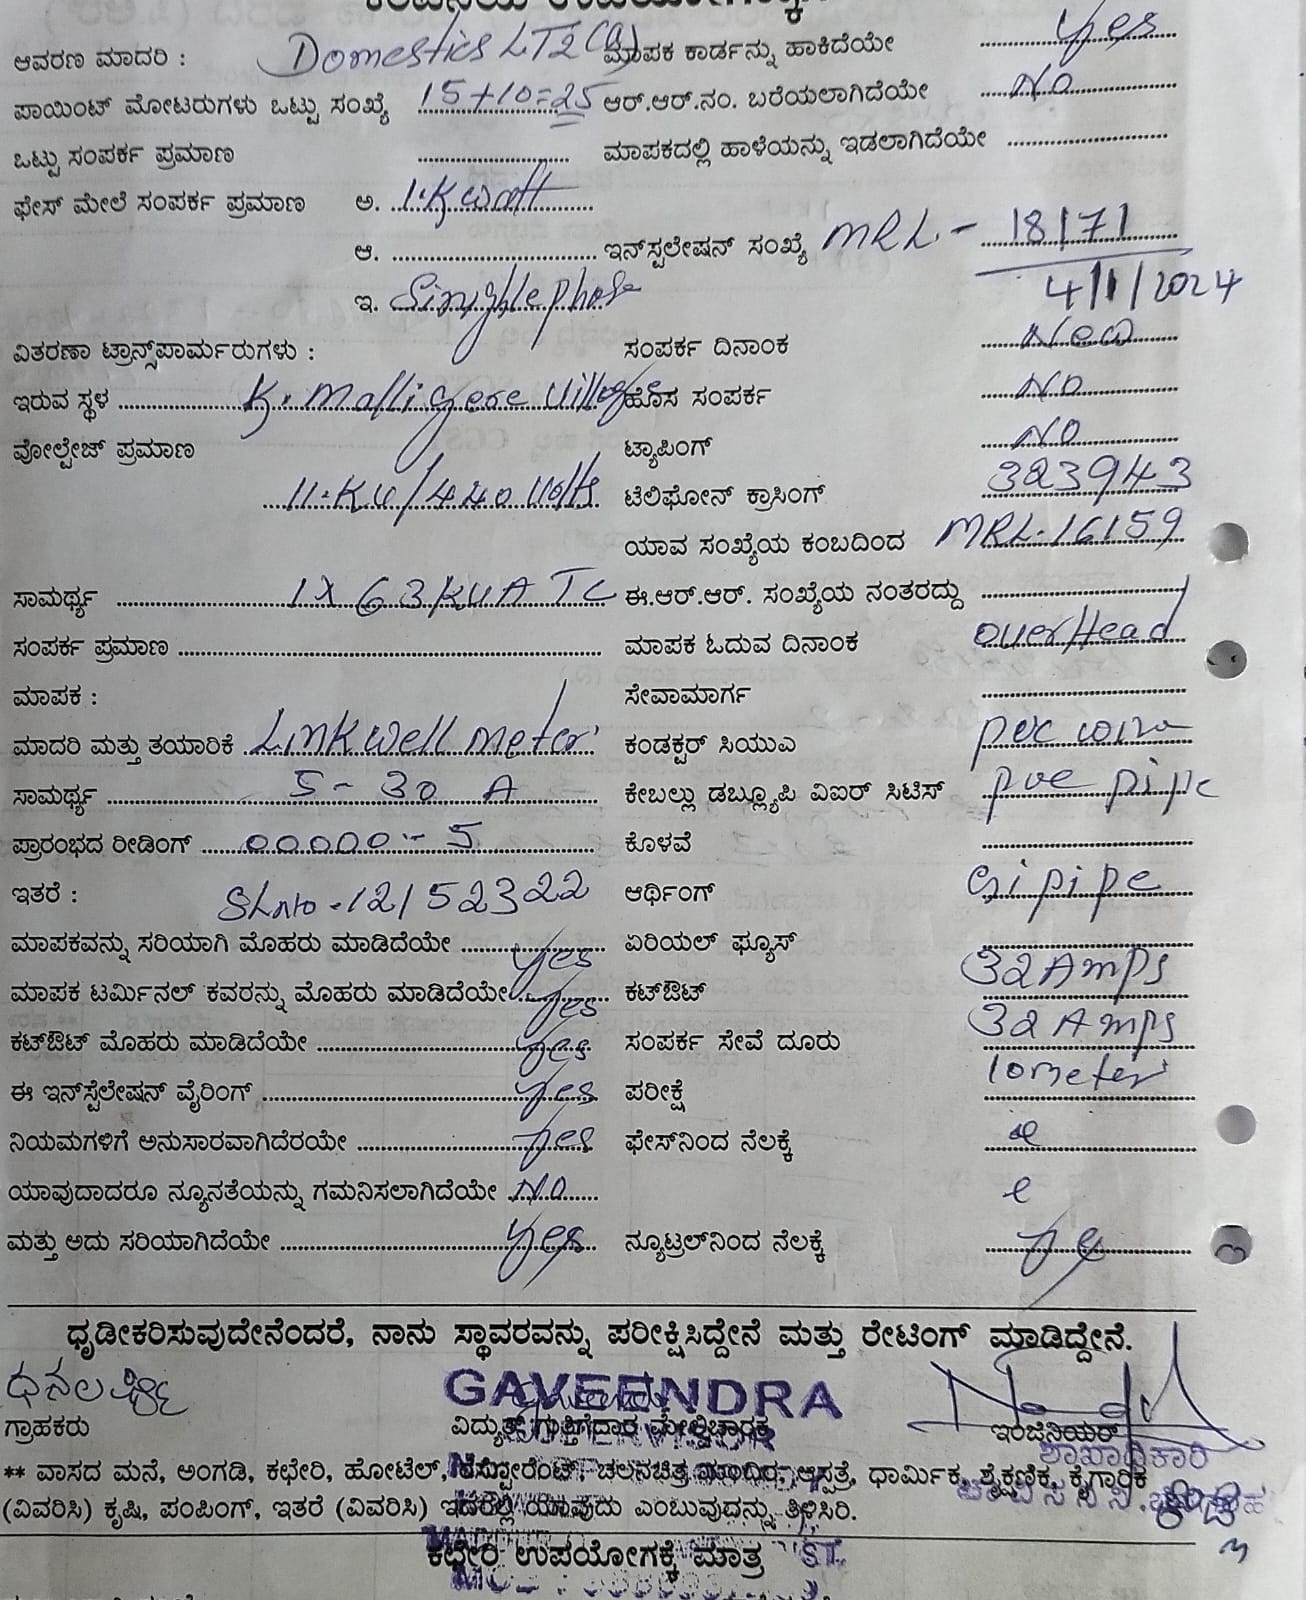 ಆವರಣ ಮಾದರಿ : Domestics LT2(a) ಮಾಪಕ ಕಾರ್ಡನ್ನು ಹಾಕಿದೆಯೇ Yes
ಪಾಯಿಂಟ್ ಮೋಟರುಗಳು ಒಟ್ಟು ಸಂಖ್ಯೆ 15+10=25 ಆರ್.ಆರ್.ನಂ. ಬರೆಯಲಾಗಿದೆಯೇ No
ಒಟ್ಟು ಸಂಪರ್ಕ ಪ್ರಮಾಣ ಮಾಪಕದಲ್ಲಿ ಹಾಳೆಯನ್ನು ಇಡಲಾಗಿದೆಯೇ
ಫೇಸ್ ಮೇಲೆ ಸಂಪರ್ಕ ಪ್ರಮಾಣ ಅ. 1.K watt
ಆ. ಇನ್‌ಸ್ಟಲೇಷನ್ ಸಂಖ್ಯೆ MRL - 18171
4/1/2024
ಇ. Singhlephase
ವಿತರಣಾ ಟ್ರಾನ್ಸ್‌ಪಾರ್ಮರುಗಳು : ಸಂಪರ್ಕ ದಿನಾಂಕ New
ಇರುವ ಸ್ಥಳ K. Malligere ಹೊಸ ಸಂಪರ್ಕ No
ವೋಲ್ಟೇಜ್ ಪ್ರಮಾಣ ಟ್ಯಾಪಿಂಗ್ NO
11.KV/440 Volts ಟೆಲಿಫೋನ್ ಕ್ರಾಸಿಂಗ್ 323943
ಯಾವ ಸಂಖ್ಯೆಯ ಕಂಬದಿಂದ MRL.16159
ಸಾಮರ್ಥ್ಯ 1X63KVA TC ಈ.ಆರ್.ಆರ್. ಸಂಖ್ಯೆಯ ನಂತರದ್ದು
ಸಂಪರ್ಕ ಪ್ರಮಾಣ ಮಾಪಕ ಓದುವ ದಿನಾಂಕ overHead
ಮಾಪಕ : ಸೇವಾಮಾರ್ಗ
ಮಾದರಿ ಮತ್ತು ತಯಾರಿಕೆ Linkwell meter ಕಂಡಕ್ಟರ್ ಸಿಯುಎ pvc wire
ಸಾಮರ್ಥ್ಯ 5 - 30 A ಕೇಬಲ್ಲು ಡಬ್ಲ್ಯೂಪಿ ವಿಐರ್ ಸಿಟಿಸ್ pvc pipe
ಪ್ರಾರಂಭದ ರೀಡಿಂಗ್ 00000 - 5 ಕೊಳವೆ
ಇತರೆ : SLNo - 12152322 ಆರ್ಥಿಂಗ್ Gi pipe
ಮಾಪಕವನ್ನು ಸರಿಯಾಗಿ ಮೊಹರು ಮಾಡಿದೆಯೇ yes ಏರಿಯಲ್ ಫ್ಯೂಸ್
ಮಾಪಕ ಟರ್ಮಿನಲ್ ಕವರನ್ನು ಮೊಹರು ಮಾಡಿದೆಯೇ yes ಕಟ್‌ಔಟ್ 32 Amps
ಕಟ್‌ಔಟ್ ಮೊಹರು ಮಾಡಿದೆಯೇ yes ಸಂಪರ್ಕ ಸೇವೆ ದೂರು 32 Amps
ಈ ಇನ್‌ಸ್ಟೆಲೇಷನ್ ವೈರಿಂಗ್ yes ಪರೀಕ್ಷೆ 10meter
ನಿಯಮಗಳಿಗೆ ಅನುಸಾರವಾಗಿದೆರಯೇ yes ಫೇಸ್‌ನಿಂದ ನೆಲಕ್ಕೆ
ಯಾವುದಾದರೂ ನ್ಯೂನತೆಯನ್ನು ಗಮನಿಸಲಾಗಿದೆಯೇ No
ಮತ್ತು ಅದು ಸರಿಯಾಗಿದೆಯೇ yes ನ್ಯೂಟ್ರಲ್‌ನಿಂದ ನೆಲಕ್ಕೆ
ಧೃಡೀಕರಿಸುವುದೇನೆಂದರೆ, ನಾನು ಸ್ಥಾವರವನ್ನು ಪರೀಕ್ಷಿಸಿದ್ದೇನೆ ಮತ್ತು ರೇಟಿಂಗ್ ಮಾಡಿದ್ದೇನೆ.
GAVEENDRA
ಗ್ರಾಹಕರು ವಿದ್ಯುತ್ ಗುತ್ತಿಗೆದಾರ ಮೇಲ್ವಿಚಾರಕ ಇಂಜಿನಿಯರ್
ಶಾಖಾಧಿಕಾರಿ
** ವಾಸದ ಮನೆ, ಅಂಗಡಿ, ಕಛೇರಿ, ಹೋಟೆಲ್, ರೆಸ್ಟೋರೆಂಟ್, ಚಲನಚಿತ್ರ ಮಂದಿರ, ಆಸ್ಪತ್ರೆ, ಧಾರ್ಮಿಕ, ಶೈಕ್ಷಣಿಕ, ಕೈಗಾರಿಕ
(ವಿವರಿಸಿ) ಕೃಷಿ, ಪಂಪಿಂಗ್, ಇತರೆ (ವಿವರಿಸಿ) ಇದರಲ್ಲಿ ಯಾವುದು ಎಂಬುವುದನ್ನು ತಿಳಿಸಿರಿ.
ಕಛೇರಿ ಉಪಯೋಗಕ್ಕೆ ಮಾತ್ರ